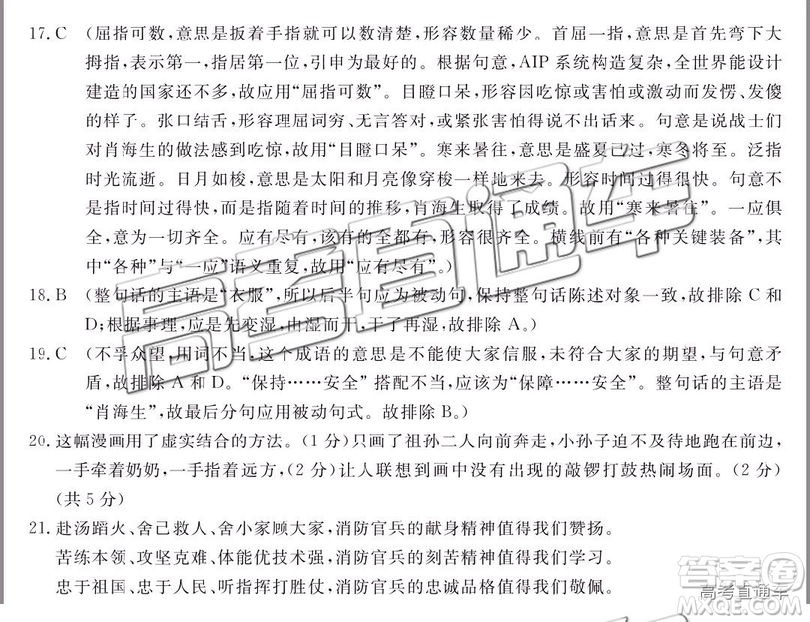 17. C （屈指可数，意思是扳着手指就可以数清楚，形容数量稀少。首屈一指，意思是首先弯下大
拇指，表示第一，指居第一位，引申为最好的。根据句意，AIP 系统构造复杂，全世界能设计
建造的国家还不多，故应用“屈指可数”。目瞪口呆，形容因吃惊或害怕或激动而发愣、发傻
的样子。张口结舌，形容理屈词穷、无言答对，或紧张害怕得说不出话来。句意是说战士们
对肖海生的做法感到吃惊，故用“目瞪口呆”。寒来暑往，意思是盛夏已过，寒冬将至。泛指
时光流逝。日月如梭，意思是太阳和月亮像穿梭一样地来去。形容时间过得很快。句意不
是指时间过得快，而是指随着时间的推移，肖海生取得了成绩。故用“寒来暑往”。一应俱
全，意为一切齐全。应有尽有，该有的全都有，形容很齐全。横线前有“各种关键装备”，其
中“各种”与“一应”语义重复，故用“应有尽有”。）
18. B （整句话的主语是“衣服”，所以后半句应为被动句，保持整句话陈述对象一致，故排除 C 和
D；根据事理，应是先变湿，由湿而干，干了再湿，故排除 A。）
19. C （不孚众望，用词不当，这个成语的意思是不能使大家信服，未符合大家的期望，与句意矛
盾，故排除 A 和 D。“保持……安全”搭配不当，应该为“保障……安全”。整句话的主语是
“肖海生”，故最后分句应用被动句式。故排除 B。）
20. 这幅漫画用了虚实结合的方法。（1 分）只画了祖孙二人向前奔走，小孙子迫不及待地跑在前边，
一手牵着奶奶，一手指着远方，（2 分）让人联想到画中没有出现的敲锣打鼓热闹场面。（2 分）
（共 5 分）
21. 赴汤蹈火、舍己救人、舍小家顾大家，消防官兵的献身精神值得我们赞扬。
苦练本领、攻坚克难、体能优技术强，消防官兵的刻苦精神值得我们学习。
忠于祖国、忠于人民、听指挥打胜仗，消防官兵的忠诚品格值得我们敬佩。
高考直通车
答案圈
高考直通车
MXQE.COM